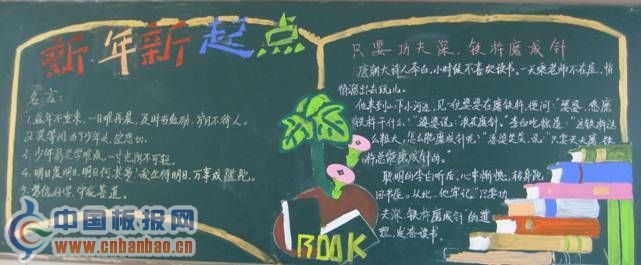 新年新起点
名言:
1.盛年不重来,一日难再晨,及时当勉励,岁月不待人。
2.莫等闲,白了少年头,空悲切。
3.少年易老学难成,一寸光阴不可轻。
4.明日复明日,明日何其多!我生待明日,万事成蹉跎。
5.笃信好学,守死善道。
只要功夫深,铁杵磨成针
唐朝大诗人李白,小时候不喜欢读书。一天乘老师不在屋,悄
悄溜出去玩儿。
他来到山下小河边,见一位婆婆在磨铁杵,便问:“婆婆,您磨
铁杵干什么?”婆婆说:“我在磨针。”李白吃惊道:“这铁杵这
么粗大,怎么能磨成针呢?”婆婆笑笑,说“只要天天磨,铁
杵总能磨成针的。
聪明的李白听后,心中惭愧,转身跑
回书屋。从此,他牢记“只要功
夫深,铁杵磨成针”的道
理,发奋读书。
BOOK
中国板报网
www.cnbanbao.cn